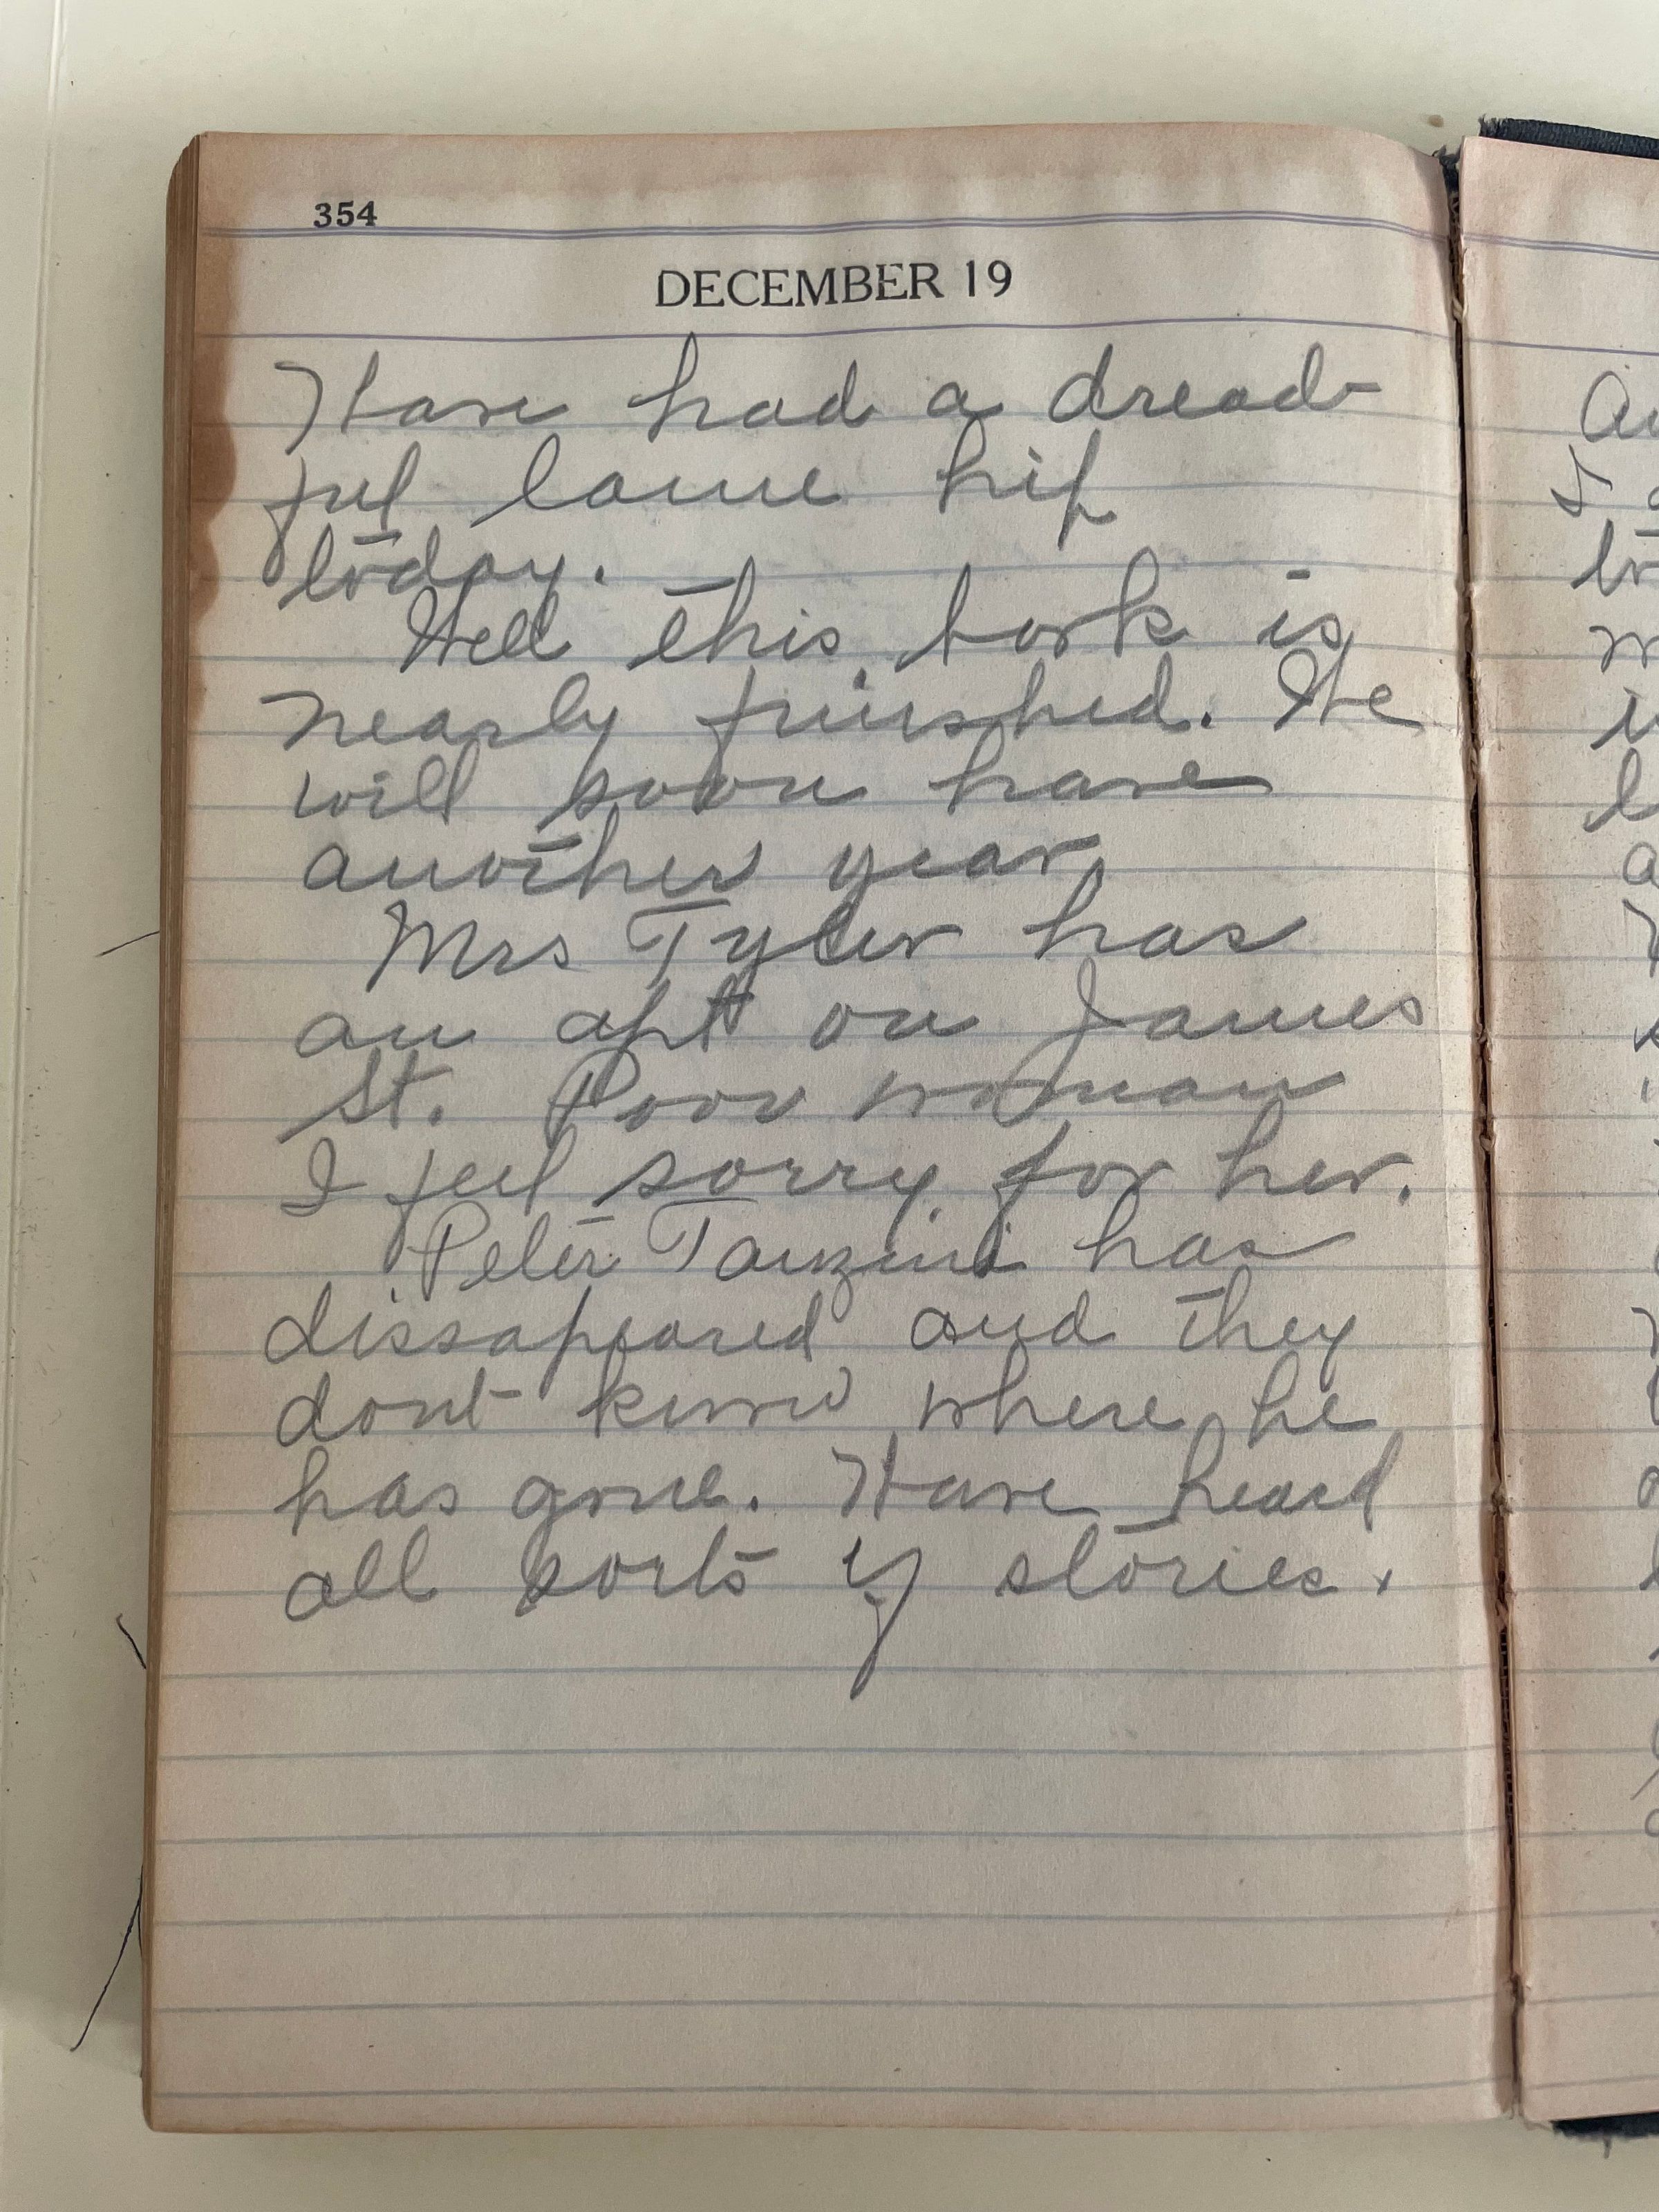 354
DECEMBER 19
Have had a dread-
ful lame hip
today.
Well this book is
nearly finished. We
will soon have
another year
Mrs Tyler has
an apt on James
St. Poor woman
I feel sorry for her.
Peter Tanzini has
dissapeared and they
dont know where he
has gone. Have heard
all sorts of stories.